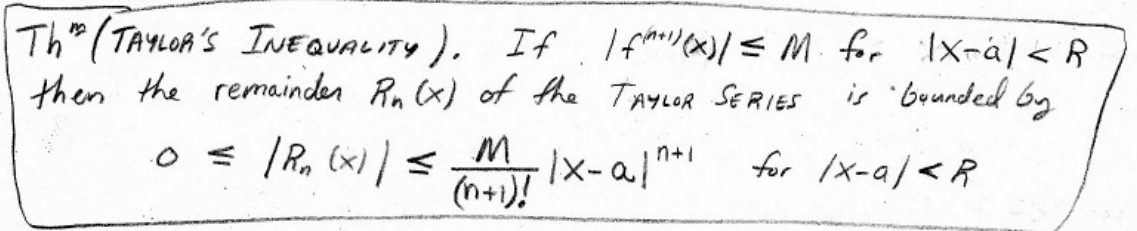 Thᵐ (TAYLOR'S INEQUALITY). If |f⁽ⁿ⁺¹⁾(x)| ≤ M for |x-a| < R
then the remainder Rₙ(x) of the TAYLOR SERIES is bounded by
0 ≤ |Rₙ(x)| ≤ M/(n+1)! |x-a|ⁿ⁺¹ for |x-a| < R